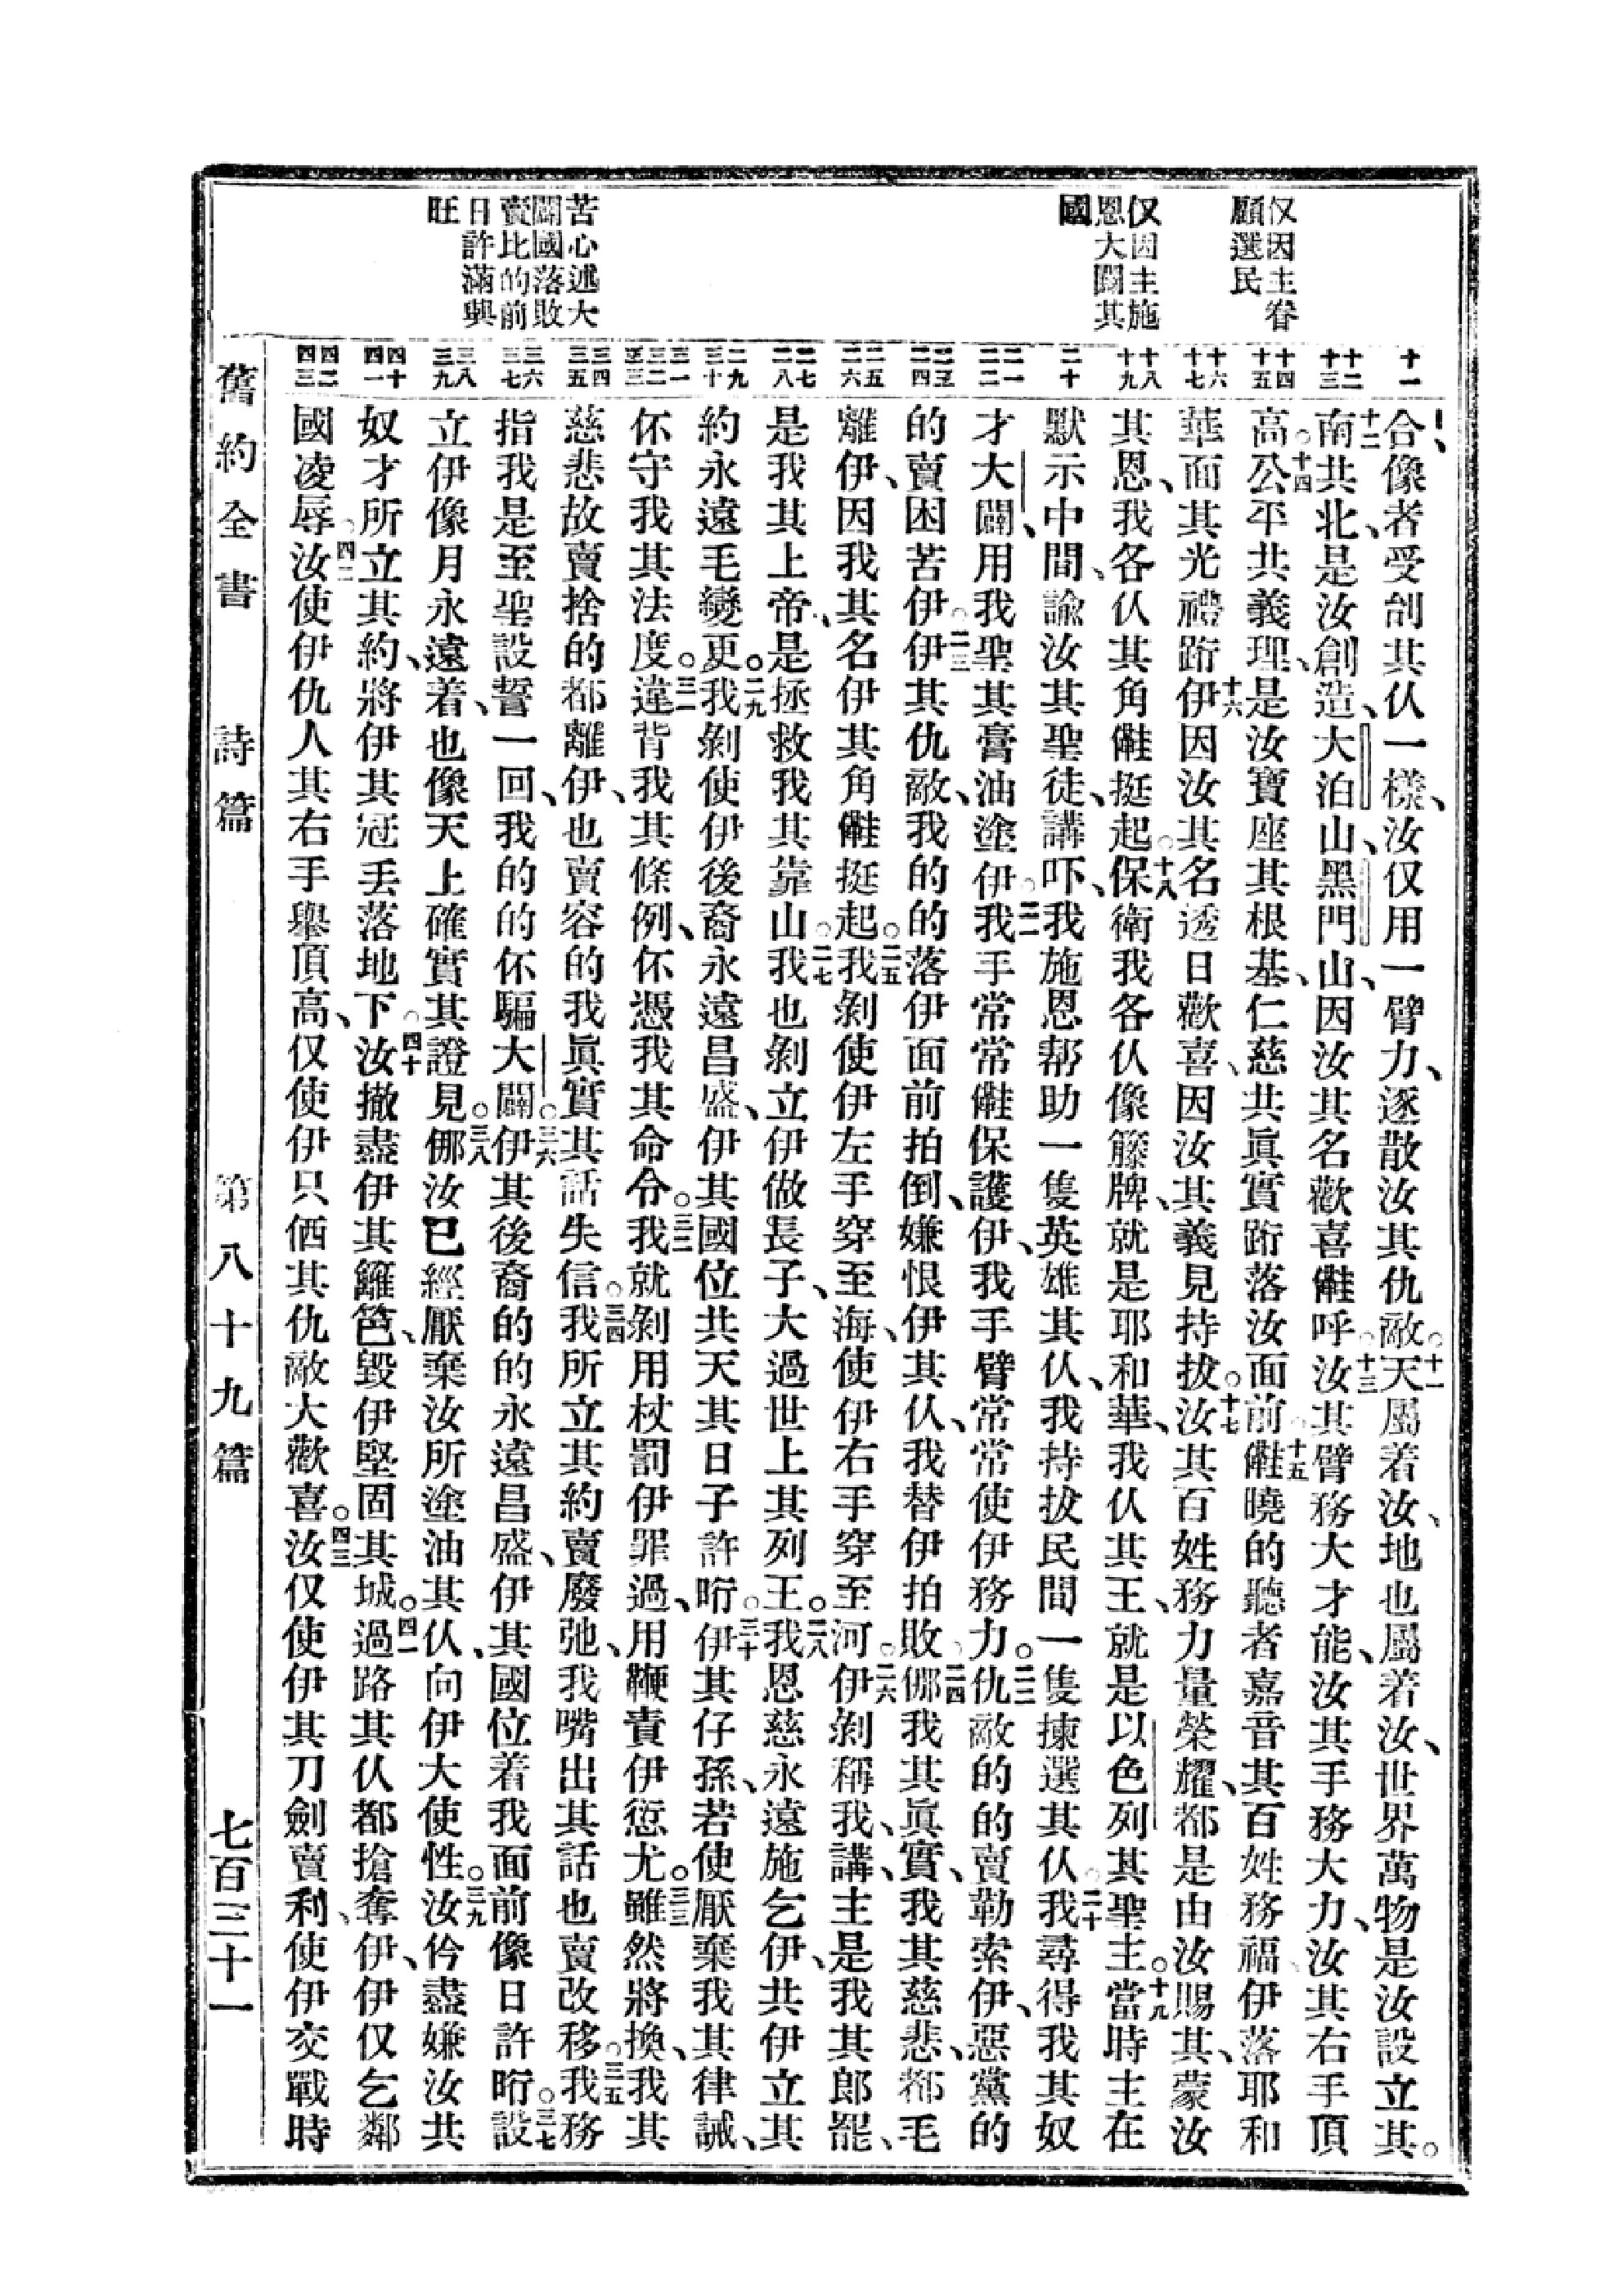 仅因主眷
顧選民
仅因主施
恩大闢其
國
苦心述大
闢國落敗
賣比的前
日許滿興
旺
十一
十二
十三
十四
十五
十六
十七
十八
十九
二十
二一
二二
二三
二四
二五
二六
二七
二八
二九
三十
三一
三二
三三
三四
三五
三六
三七
三八
三九
四十
四一
四二
四三
合、像者受创其仈一樣、汝仅用一臂力、逐散汝其仇敵。十一天屬着汝、地也屬着汝、世界萬物是汝設立其。
十二南共北、是汝創造、大泊山、黑門山、因汝其名歡喜㒔呼。十三汝其臂務大才能、汝其手務大力、汝其右手頂
高。十四公平共義理、是汝寶座其根基、仁慈共眞實跻落汝面前。十五㒔曉的聽者嘉音其百姓務福、伊落耶和
華面其光禮跻。十六伊因汝其名透日歡喜、因汝其義見持拔。十七汝其百姓、務力量榮耀、都是由汝賜其、蒙汝
其恩、我各仈其角㒔挺起。十八保衛我各仈像籐牌、就是耶和華、我仈其王、就是以色列其聖主。十九當時主在
默示中間、諭汝其聖徒、講吓、我施恩帮助一隻英雄其仈、我持拔民間一隻揀選其仈。二十我尋得我其奴
才大闢、用我聖其膏油塗伊。二一我手常常㒔保護伊、我手臂常常使伊務力。二二仇敵的的賣勒索伊、惡黨的
的賣困苦伊。二三伊其仇敵、我的的落伊面前拍倒、嫌恨伊其仈、我替伊拍敗。二四㑚我其眞實、我其慈悲、都毛
離伊、因我其名伊其角㒔挺起。二五我剝使伊左手穿至海、使伊右手穿至河。二六伊剝稱我、講、主是我其郎罷、
是我其上帝、是拯救我其靠山。二七我也剝立伊做長子、大過世上其列王。二八我恩慈永遠施乞伊、共伊立其
約永遠毛變更。二九我剝使伊後裔永遠昌盛、伊其國位共天其日子許𣍐。三十伊其仔孫、若使厭棄我其律誡、
伓守我其法度。三一違背我其條例、伓憑我其命令。三二我就剝用杖罰伊罪過、用鞭責伊愆尤。三三雖然將換、我其
慈悲故賣捨的都離伊、也賣容的我眞實其話失信。三四我所立其約賣廢弛、我嘴出其話也賣改移。三五我務
指我是至聖設誓一回、我的的伓騙大闢。三六伊其後裔的的永遠昌盛、伊其國位着我面前像日許𣍐。三七設
立伊像月永遠着、也像天上確實其證見。三八㑚汝已經厭棄汝所塗油其仈、向伊大使性。三九汝仱盡嫌汝共
奴才所立其約、將伊其冠丢落地下。四十汝撤盡伊其籬笆、毀伊堅固其城。四一過路其仈都搶奪伊、伊仅乞鄰
國凌辱。四二汝使伊仇人其右手舉頂高、仅使伊只𠆧其仇敵大歡喜。四三汝仅使伊其刀劍賣利、使伊交戰時
舊約全書　詩篇　第八十九篇　七百三十一